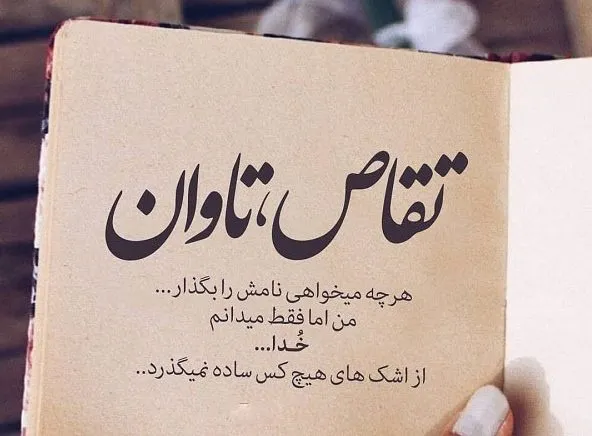 تقاص،تاوان
هرچه میخواهی نامش را بگذار...
من اما فقط میدانم
خُدا...
از اشک های هیچ کس ساده نمیگذرد..